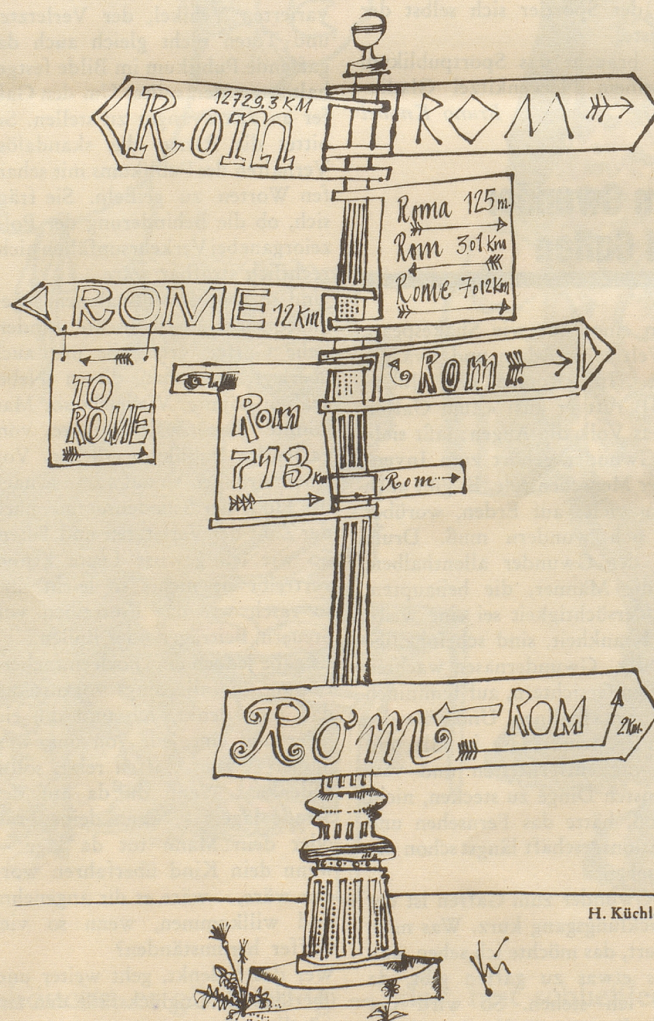 12729,3 KM
Rom
ROM
Roma 125 m.
Rom 3.01 Km
Rome 7012 km
ROME 12 Km
TO
ROME
Rom
Rom
713 Km
Rom
Rom ROM 2 Km.
H. Küchl